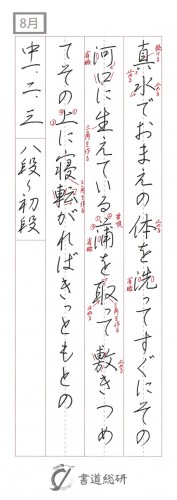 8月
真水でおまえの体を洗ってすぐにその
河口に生えている蒲を取って敷きつめ
てその上に寝転がればきっともとの
中一、二、三 八段〜初段
書道総研